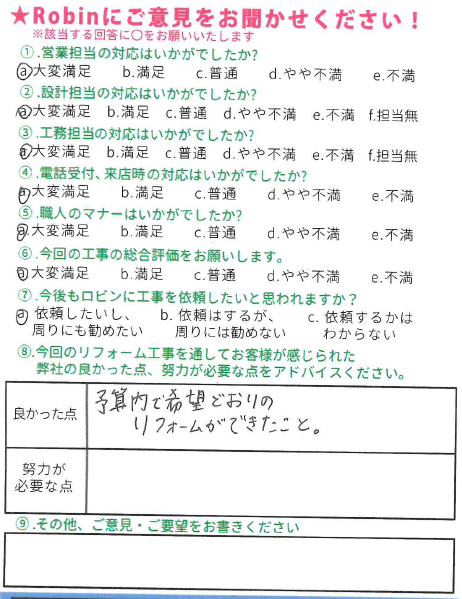 ★Robinにご意見をお聞かせください！
※該当する回答に〇をお願いいたします
①.営業担当の対応はいかがでしたか?
a大変満足 b.満足 c.普通 d.やや不満 e.不満
②.設計担当の対応はいかがでしたか?
a大変満足 b.満足 c.普通 d.やや不満 e.不満 f.担当無
③.工務担当の対応はいかがでしたか?
a.大変満足 b.満足 c.普通 d.やや不満 e.不満 f.担当無
④.電話受付、来店時の対応はいかがでしたか?
a大変満足 b.満足 c.普通 d.やや不満 e.不満
⑤.職人のマナーはいかがでしたか?
a.大変満足 b.満足 c.普通 d.やや不満 e.不満
⑥.今回の工事の総合評価をお願いします。
a大変満足 b.満足 c.普通 d.やや不満 e.不満
⑦.今後もロビンに工事を依頼したいと思われますか？
a 依頼したいし、 b. 依頼はするが、 c. 依頼するかは
周りにも勧めたい 周りには勧めない わからない
⑧.今回のリフォーム工事を通してお客様が感じられた
弊社の良かった点、努力が必要な点をアドバイスください。
良かった点 予算内で希望どおりの
リフォームができたこと。
努力が
必要な点
⑨.その他、ご意見・ご要望をお書きください